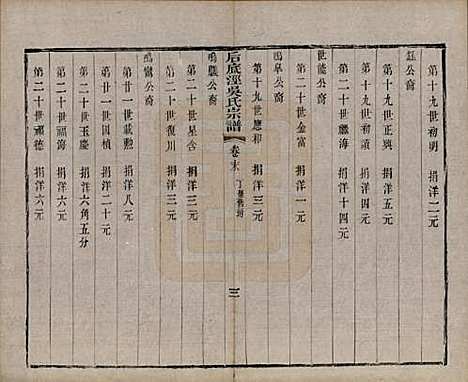 鈺公裔
第十九世初明　捐洋二元
第十九世正興　捐洋五元
第十九世初讀　捐洋四元
第二十世繼海　捐洋十四元
世能公裔
第二十世金富　捐洋一元
鳴皋公裔
第十九世應和　捐洋三元
后底涇吳氏宗譜
卷末
三
鳴麒公裔
第二十世星含　捐洋三元
第二十世復川　捐洋二元
鳴鸞公裔
第廿一世載勳　捐洋八元
第廿一世因楨　捐洋二十元
第二十世玉慶　捐洋六角五分
第二十世福海　捐洋六元
第二十世福德　捐洋六元